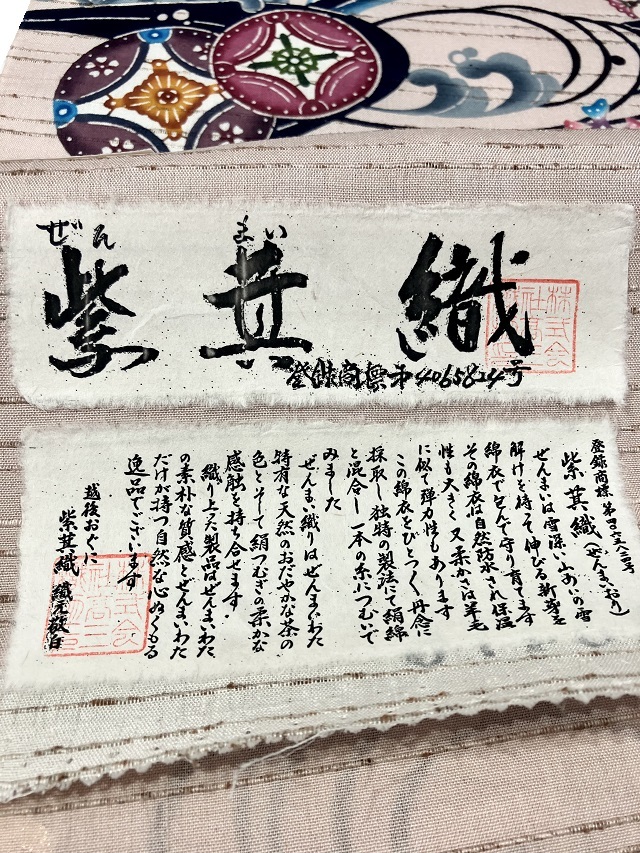 ぜんまい
紫萁織
登録商標第4065824号
登録商標 第四〇六五八二四号
紫萁織(ぜんまいおり)
ぜんまいは雪深い山あいの雪
解けを待って伸びる新芽を
綿衣で包んで守り育てます
その綿衣は自然防水され保温
性も大きく又柔かさは羊毛
に似て弾力性もあります
この綿衣をひとつひとつ丹念に
採取し独特の製法にて絹綿
と混合し一本の糸につむいで
みました
ぜんまい織りはぜんまいわた
特有な天然のおだやかな茶の
色とそして絹つむぎの柔かな
感触を持ち合せます・
織り上った製品はぜんまいわた
の素朴な質感とぜんまいわた
だけが持つ自然な心ぬくもる
逸品でございます
越後おぐに
紫萁織 織元敬白
株式会